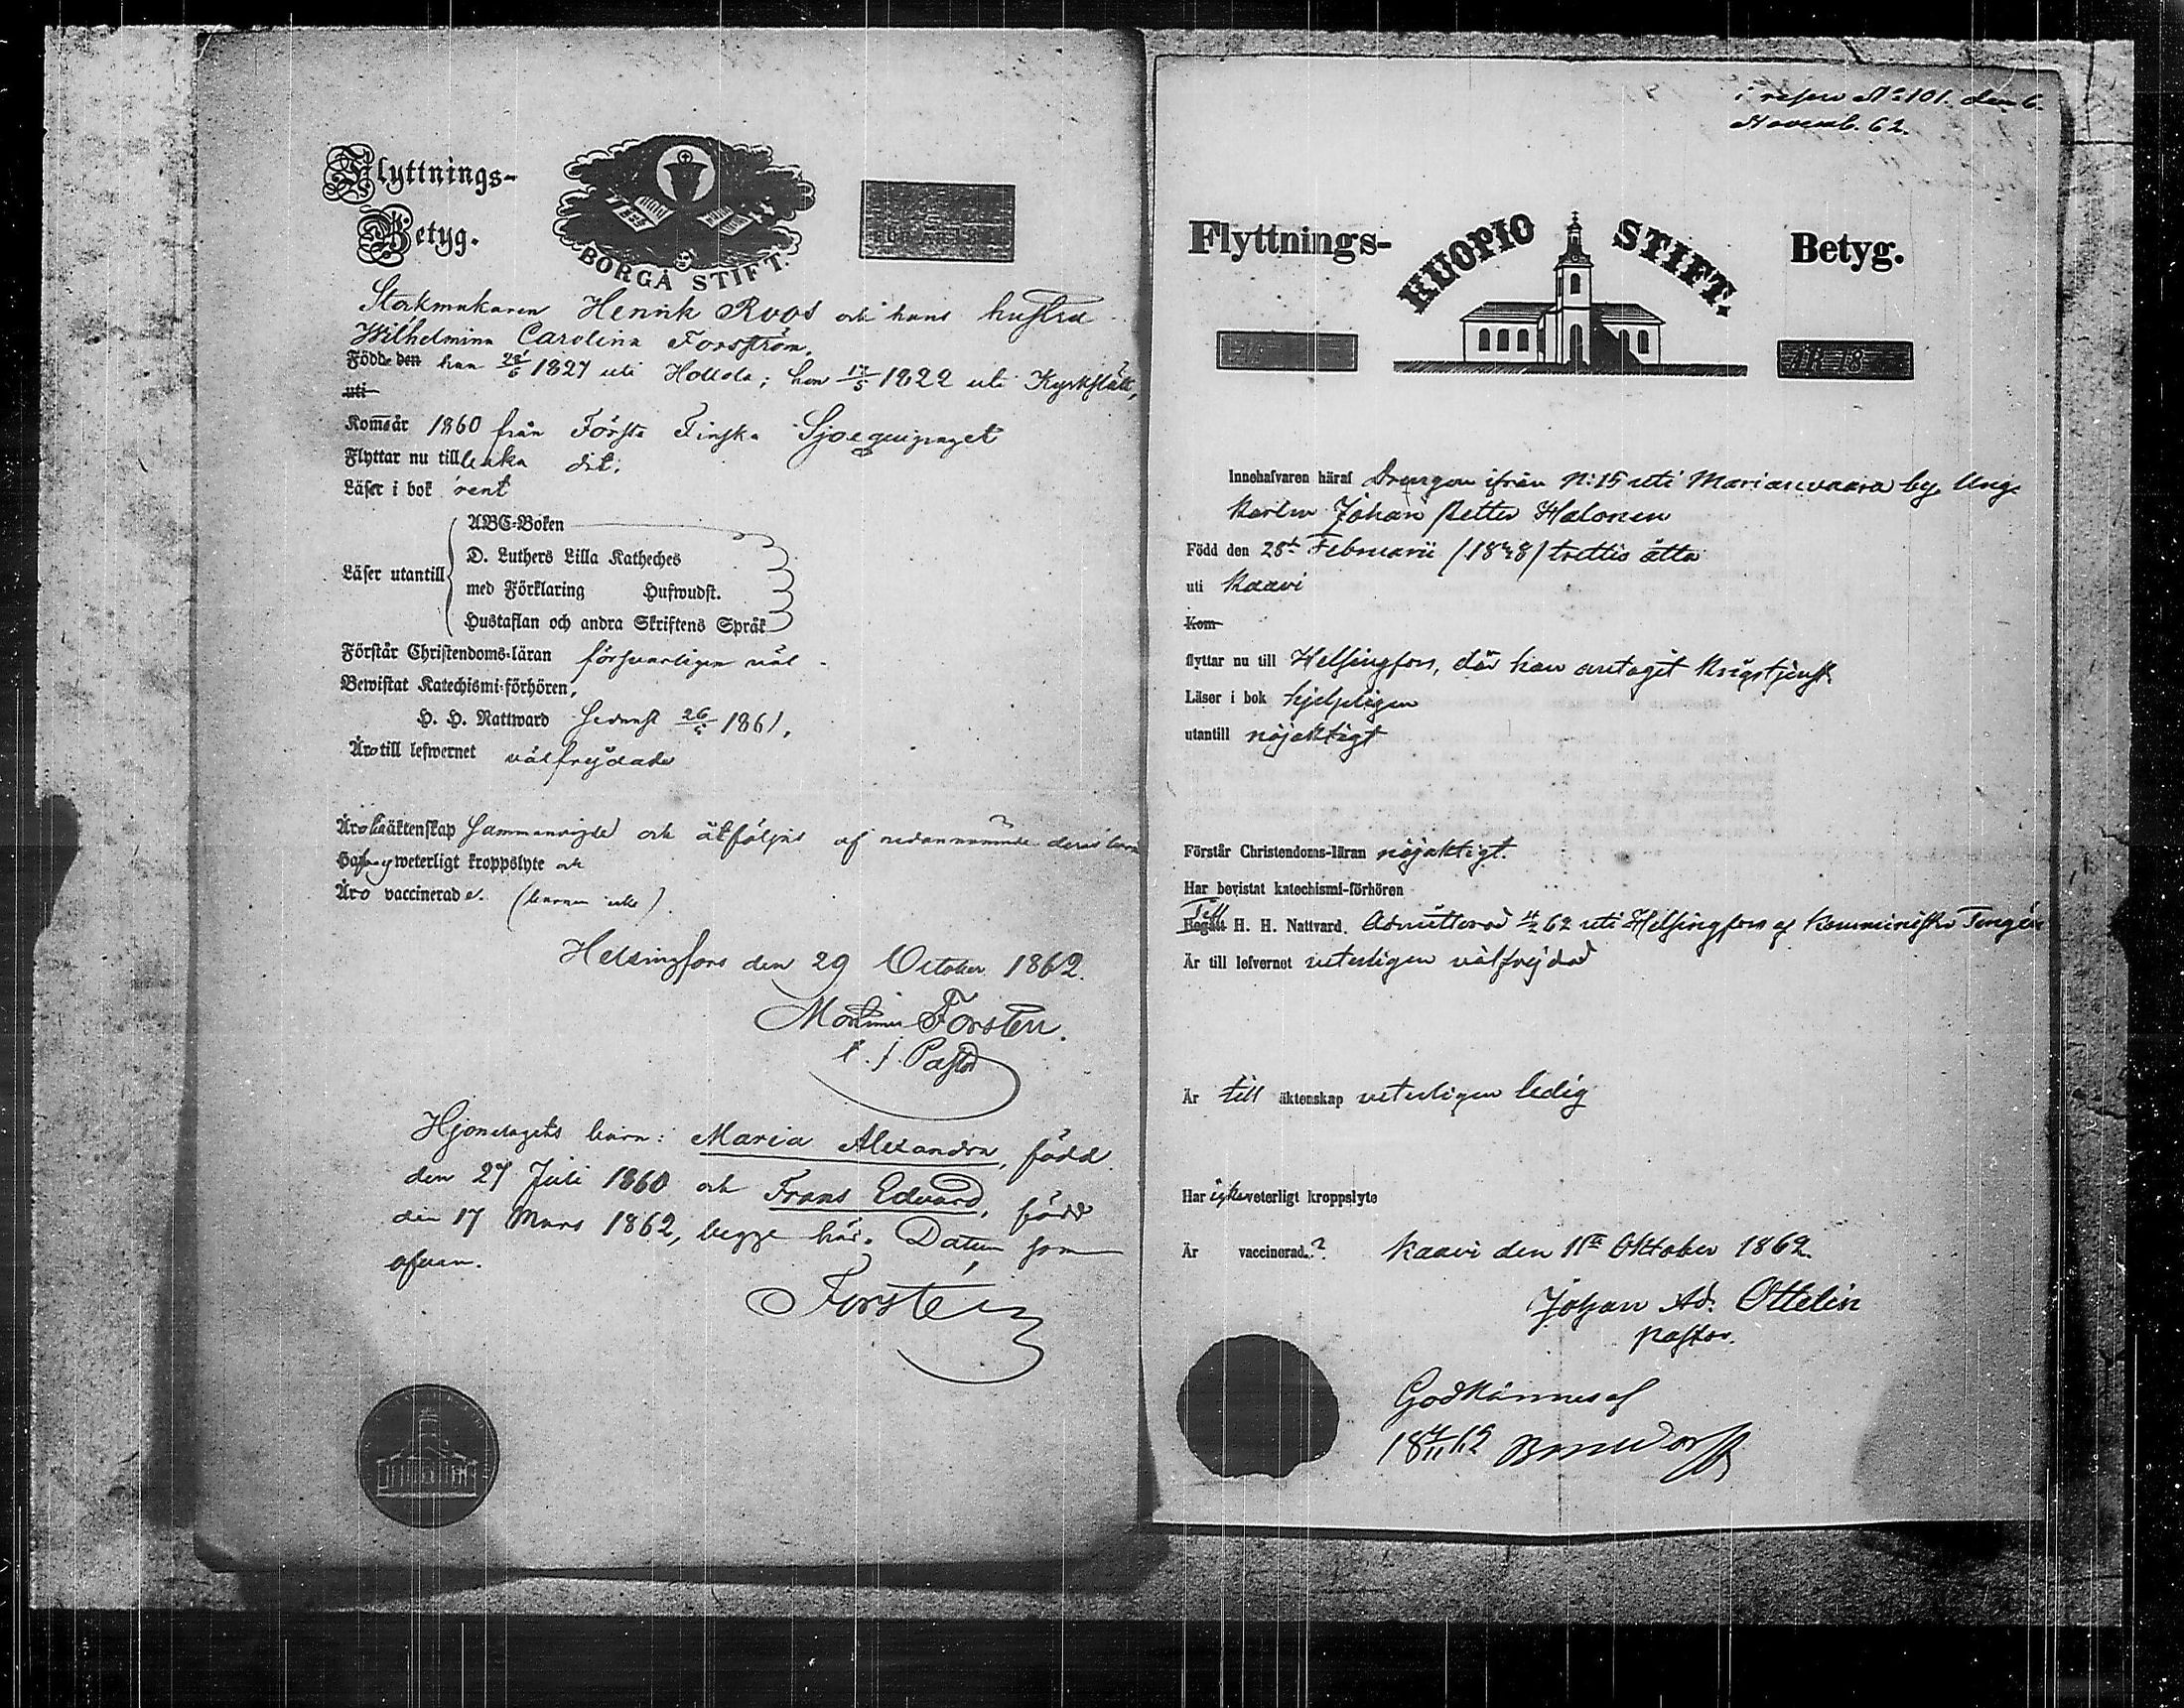 Flyttnings-
Betyg.
BORGÅ STIFT.
Stokmakaren Henrik Roos och hans hustru
Wilhelmina Carolina Forsström,
Födde den han 1827 uti Hollola; hon 17/5 1822 uti Kyrkslätt,
uti
Komo år 1860 från Första Finska Sjöequipaget
Flyttar nu till baka dit.
Läser i bok rent
ABC-Boken
D. Luthers Lilla Katheches
Läser utantill
med Förklaring Hufwudst.
Hustaflan och andra Skriftens Språk
Förstår Christendoms-läran försvarligen väl
Bewistat Katechismi-förhören,
H. H. Nattward senast 1861,
Äro till lefwernet välfrejdade
Äro i äktenskap sammanvigde och åtföljas af nedannämnde deras barn
Hafva ej weterligt kroppslyte och
Äro vaccinerade. (barnen icke)
Helsingfors den 29 October 1862.
Mortimer Forstén.
t. f. Pastor
Hjonelagets barn: Maria Alexandra, född
den 27 Juli 1860 och Frans Edvard, född
den 17 Mars 1862, begge här. Datum som
ofvan.
Forstén
i resen No 101. den 6.
Novemb. 62.
Flyttnings-
KUOPIO STIFT.
Betyg.
ÅR 18
Innehafvaren häraf Drängen ifrån N:15 uti Marianvaara by, Ung
karlen Johan Petter Halonen
Född den 28de Februarii (1838) trettio åtta
uti Kaavi
Kom
flyttar nu till Helsingfors, där han antagit krigstjenst.
Läser i bok hjelpligen
utantill nöjaktigt
Förstår Christendoms-läran nöjaktigt.
Har bevistat katechismi-förhören
Till
Begått H. H. Nattvard. Admitterad 62 uti Helsingfors af Kommin­ister Tengén
Är till lefvernet veterligen välfrejdad
Är till äktenskap veterligen ledig
Har icke veterligt kroppslyte
Är vaccinerad.?
Kaavi den 11te Oktober 1862.
Johan Ad. Ottelin
pastor.
Godkännes af
18 4/11 62